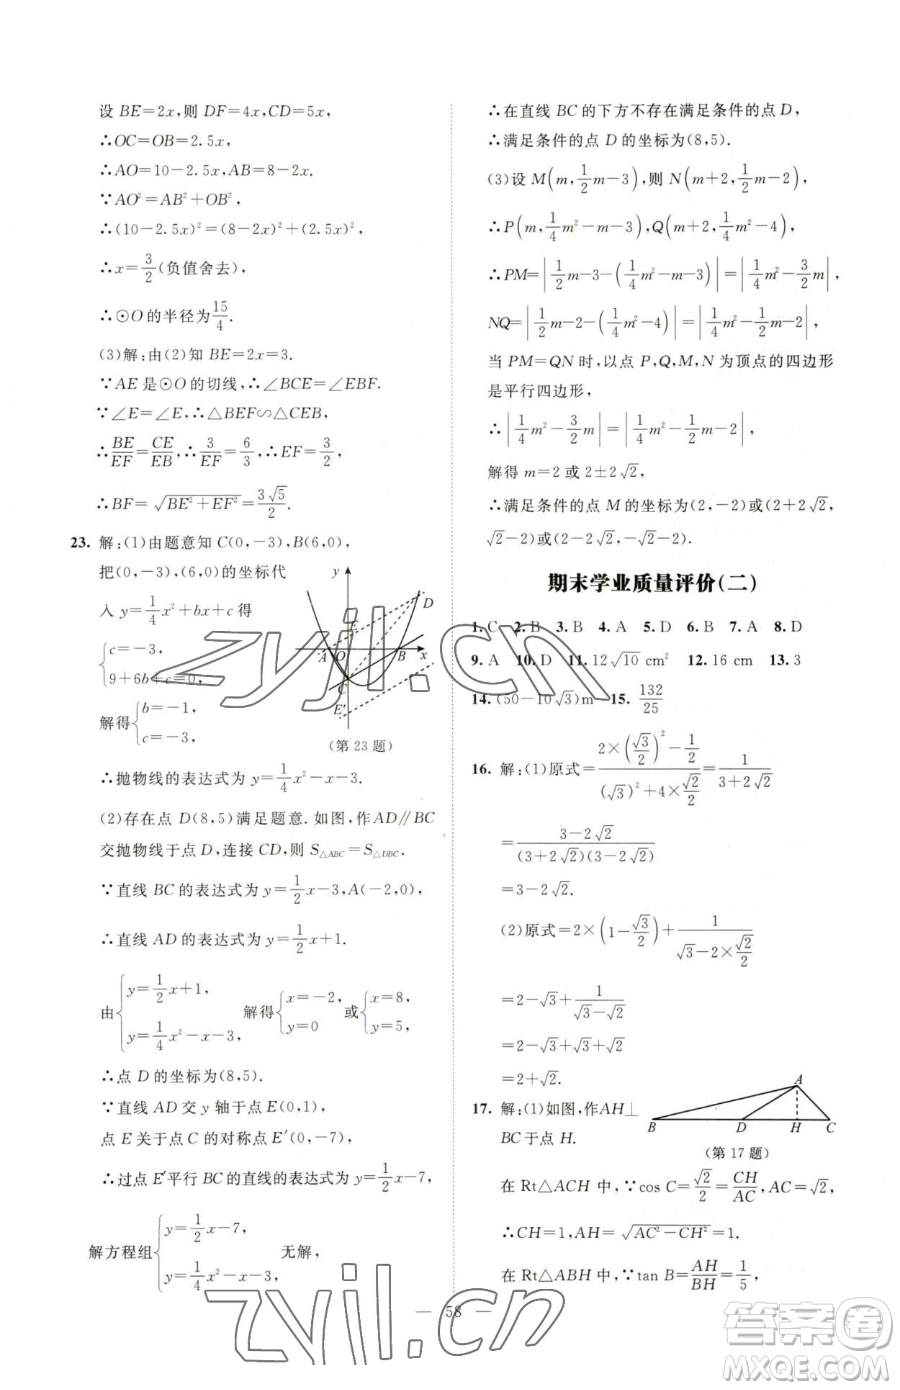 设 BE=2x,则 DF=4x,CD=5x,
∴OC=OB=2.5x,
∴AO=10-2.5x,AB=8-2x,
∵AO²=AB²+OB²,
∴(10-2.5x)²=(8-2x)²+(2.5x)²,
∴x=3/2(负值舍去),
∴⊙O的半径为15/4.
(3)解:由(2)知 BE=2x=3.
∵AE 是⊙O的切线,∴∠BCE=∠EBF.
∵∠E=∠E,∴△BEF∽△CEB,
∴BE/EF=CE/EB,∴3/EF=6/3,∴EF=3/2,
∴BF=√(BE²+EF²)=3√5/2.
23. 解:(1)由题意知 C(0,-3),B(6,0),
把(0,-3),(6,0)的坐标代
入 y=1/4x²+bx+c 得
{c=-3,
9+6b+c=0,
解得{b=-1,
c=-3,
y
D
E
A
O
B
x
C
E′
(第 23 题)
∴抛物线的表达式为 y=1/4x²-x-3.
(2)存在点 D(8,5)满足题意. 如图,作AD∥BC
交抛物线于点 D,连接 CD,则 S△ABC=S△DBC.
∵直线 BC 的表达式为 y=1/2x-3,A(-2,0),
∴直线 AD 的表达式为 y=1/2x+1.
由{y=1/2x+1,
y=1/4x²-x-3,
解得{x=-2,
y=0
或{x=8,
y=5,
∴点 D 的坐标为(8,5).
∵直线 AD 交 y 轴于点E(0,1),
点 E 关于点 C 的对称点 E′(0,-7),
∴过点 E′平行 BC 的直线的表达式为 y=1/2x-7,
解方程组{y=1/2x-7,
y=1/4x²-x-3,
无解,
∴在直线 BC 的下方不存在满足条件的点 D,
∴满足条件的点 D 的坐标为(8,5).
(3)设 M(m,1/2m-3),则 N(m+2,1/2m-2),
∴P(m,1/4m²-m-3),Q(m+2,1/4m²-4),
∴PM=|1/2m-3-(1/4m²-m-3)|=|1/4m²-3/2m|,
NQ=|1/2m-2-(1/4m²-4)|=|1/4m²-1/2m-2|,
当 PM=QN 时,以点 P,Q,M,N 为顶点的四边形
是平行四边形,
∴|1/4m²-3/2m|=|1/4m²-1/2m-2|,
解得 m=2 或 2±2√2,
∴满足条件的点 M 的坐标为(2,-2)或(2+2√2,
√2-2)或(2-2√2,-√2-2).
期末学业质量评价(二)
1. C 2. B 3. B 4. A 5. D 6. B 7. A 8. D
9. A 10. D 11. 12√10 cm² 12. 16 cm 13. 3
14. (50-10√3)m 15. 132/25
16. 解:(1)原式=(2×(√3/2)²-1/2)/((√3)²+4×√2/2)=1/(3+2√2)
=(3-2√2)/((3+2√2)(3-2√2))
=3-2√2.
(2)原式=2×(1-√3/2)+1/(√3-2×√2/2)
=2-√3+1/(√3-√2)
=2-√3+√3+√2
=2+√2.
17. 解:(1)如图,作AH⊥
BC于点 H.
A
B
D
H
C
(第 17 题)
在 Rt△ACH 中,∵cos C=√2/2=CH/AC,AC=√2,
∴CH=1,AH=√(AC²-CH²)=1.
在 Rt△ABH 中,∵tan B=AH/BH=1/5,
— 58 —
zyjl.cn
zyjl.cn
答案圈
MXQE.COM